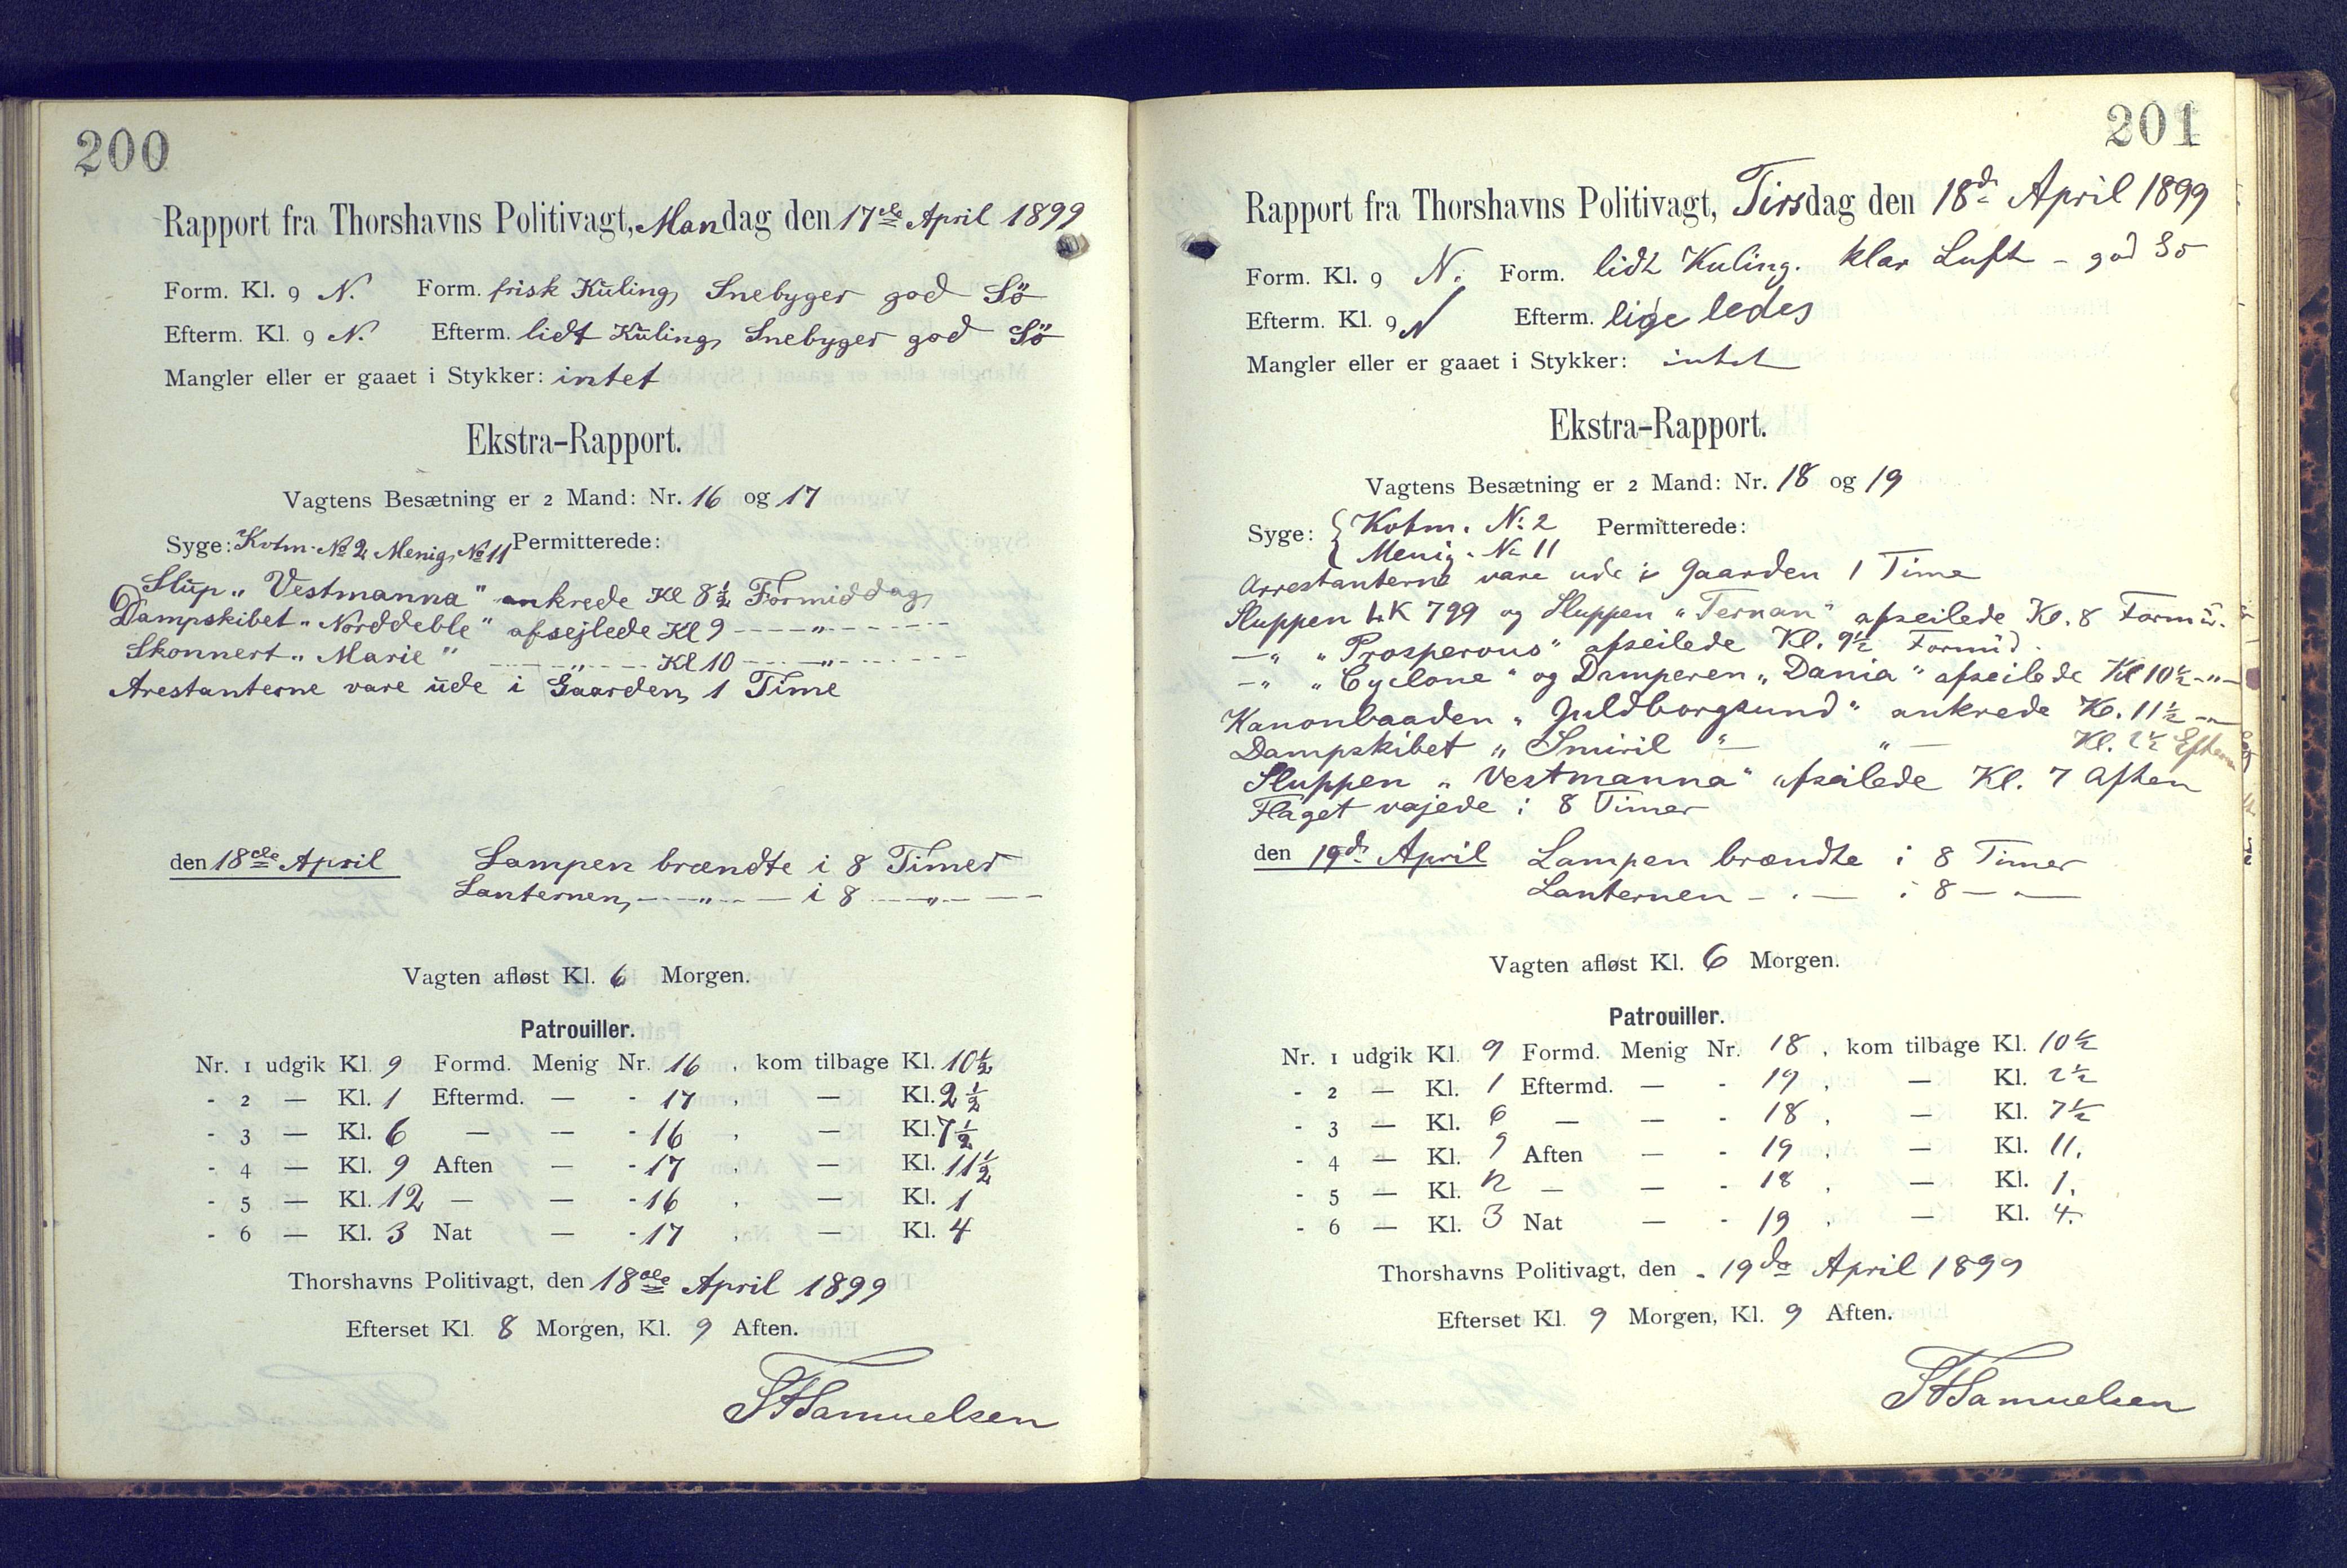 200
Rapport fra Thorshavns Politivagt, Mandag den 17de April 1899
Form. Kl. 9 N. Form. frisk Kuling Snebyger god Sö
Efterm. Kl. 9 N. Efterm. lidt Kuling Snebyger god Sö
Mangler eller er gaaet i Stykker: intet
Ekstra-Rapport.
Vagtens Besætning er 2 Mand: Nr. 16 og 17
Syge: Kotm. No 2 Menig No 11 Permitterede:
Slup „Vestmanna" ankrede Kl 8½ Formiddag
Dampskibet „Norddeble" afsejlede Kl 9 — „ —
Skonnert „Marie" — „ — Kl 10 — „ —
Arestanterne vare ude i Gaarden 1 Time
den 18de April Lampen brændte i 8 Timer
Lanternen — „ — i 8 — „ —
Vagten afløst Kl. 6 Morgen.
Patrouiller.
Nr. 1 udgik Kl. 9 Formd. Menig Nr. 16, kom tilbage Kl. 10½
- 2 — Kl. 1 Eftermd. — - 17, — Kl. 2½
- 3 — Kl. 6 — — - 16, — Kl. 7½
- 4 — Kl. 9 Aften — - 17, — Kl. 11½
- 5 — Kl. 12 — — - 16, — Kl. 1
- 6 — Kl. 3 Nat — - 17, — Kl. 4
Thorshavns Politivagt, den 18de April 1899
Efterset Kl. 8 Morgen, Kl. 9 Aften.
Samuelsen
201
Rapport fra Thorshavns Politivagt, Tirsdag den 18d. April 1899
Form. Kl. 9 N. Form. lidt Kuling. klar Luft – god Sö
Efterm. Kl. 9 N Efterm. lige ledes
Mangler eller er gaaet i Stykker: intet
Ekstra-Rapport.
Vagtens Besætning er 2 Mand: Nr. 18 og 19
Syge: { Kotm. No 2 Permitterede:
Menig. No 11
Arrestanterne vare ude i Gaarden 1 Time
Sluppen LK 799 og Sluppen „Ternan" afseilede Kl. 8 Formid.
—„ „Prosperous" afseilede Kl. 9½ Formid.
—„ „Cyclone" og Damperen „Dania" afseilede Kl 10½ -„-
Kanonbaaden „Guldborgsund" ankrede Kl. 11½ -„-
Dampskibet „Smiril" — „ — Kl. 2½ Efterm
Sluppen „Vestmanna" afseilede Kl. 7 Aften
Flaget vajede i 8 Timer
den 19d. April Lampen brændte i 8 Timer
Lanternen — „ — i 8 — „ —
Vagten afløst Kl. 6 Morgen.
Patrouiller.
Nr. 1 udgik Kl. 9 Formd. Menig Nr. 18, kom tilbage Kl. 10½
- 2 — Kl. 1 Eftermd. — - 19, — Kl. 2½
- 3 — Kl. 6 — — - 18, — Kl. 7½
- 4 — Kl. 9 Aften — - 19, — Kl. 11.
- 5 — Kl. 12 — — - 18, — Kl. 1.
- 6 — Kl. 3 Nat — - 19, — Kl. 4.
Thorshavns Politivagt, den 19de April 1899
Efterset Kl. 9 Morgen, Kl. 9 Aften.
Samuelsen